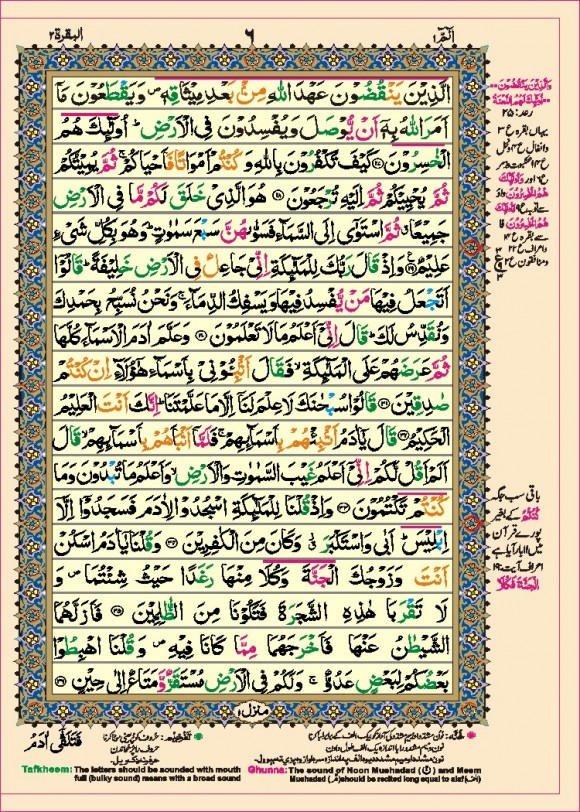 الٓمّٓ ١
٦
البقرة ٢
الَّذِيْنَ يَنْقُضُوْنَ عَهْدَ اللّٰهِ مِنْۢ بَعْدِ مِيْثَاقِهٖ ۪ وَيَقْطَعُوْنَ مَاۤ
اَمَرَ اللّٰهُ بِهٖۤ اَنْ يُّوْصَلَ وَيُفْسِدُوْنَ فِى الْاَرْضِ ؕ اُولٰٓئِكَ هُمُ
الْخٰسِرُوْنَ ﴿۲۷﴾ كَيْفَ تَكْفُرُوْنَ بِاللّٰهِ وَكُنْتُمْ اَمْوَاتًا فَاَحْيَاكُمْ ۚ ثُمَّ يُمِيْتُكُمْ
ثُمَّ يُحْيِيْكُمْ ثُمَّ اِلَيْهِ تُرْجَعُوْنَ ﴿۲۸﴾ هُوَ الَّذِىْ خَلَقَ لَكُمْ مَّا فِى الْاَرْضِ
جَمِيْعًا ۗ ثُمَّ اسْتَوٰۤى اِلَى السَّمَآءِ فَسَوّٰىهُنَّ سَبْعَ سَمٰوٰتٍ ؕ وَهُوَ بِكُلِّ شَىْءٍ
عَلِيْمٌ ﴿۲۹﴾ وَاِذْ قَالَ رَبُّكَ لِلْمَلٰٓئِكَةِ اِنِّىْ جَاعِلٌ فِى الْاَرْضِ خَلِيْفَةً ؕ قَالُوْۤا
اَتَجْعَلُ فِيْهَا مَنْ يُّفْسِدُ فِيْهَا وَيَسْفِكُ الدِّمَآءَ ۚ وَنَحْنُ نُسَبِّحُ بِحَمْدِكَ
وَنُقَدِّسُ لَكَ ؕ قَالَ اِنِّىْۤ اَعْلَمُ مَا لَا تَعْلَمُوْنَ ﴿۳۰﴾ وَعَلَّمَ اٰدَمَ الْاَسْمَآءَ كُلَّهَا
ثُمَّ عَرَضَهُمْ عَلَى الْمَلٰٓئِكَةِ ۙ فَقَالَ اَنْۢبِئُوْنِىْ بِاَسْمَآءِ هٰۤؤُلَآءِ اِنْ كُنْتُمْ
صٰدِقِيْنَ ﴿۳۱﴾ قَالُوْا سُبْحٰنَكَ لَا عِلْمَ لَنَاۤ اِلَّا مَا عَلَّمْتَنَا ؕ اِنَّكَ اَنْتَ الْعَلِيْمُ
الْحَكِيْمُ ﴿۳۲﴾ قَالَ يٰۤاٰدَمُ اَنْۢبِئْهُمْ بِاَسْمَآئِهِمْ ۚ فَلَمَّاۤ اَنْۢبَاَهُمْ بِاَسْمَآئِهِمْ ۙ قَالَ
اَلَمْ اَقُلْ لَّكُمْ اِنِّىْۤ اَعْلَمُ غَيْبَ السَّمٰوٰتِ وَالْاَرْضِ ۙ وَاَعْلَمُ مَا تُبْدُوْنَ وَمَا
كُنْتُمْ تَكْتُمُوْنَ ﴿۳۳﴾ وَاِذْ قُلْنَا لِلْمَلٰٓئِكَةِ اسْجُدُوْا لِاٰدَمَ فَسَجَدُوْۤا اِلَّاۤ
اِبْلِيْسَ ؕ اَبٰى وَاسْتَكْبَرَ ۗ وَكَانَ مِنَ الْكٰفِرِيْنَ ﴿۳۴﴾ وَقُلْنَا يٰۤاٰدَمُ اسْكُنْ
اَنْتَ وَزَوْجُكَ الْجَنَّةَ وَكُلَا مِنْهَا رَغَدًا حَيْثُ شِئْتُمَا ۪ وَ
لَا تَقْرَبَا هٰذِهِ الشَّجَرَةَ فَتَكُوْنَا مِنَ الظّٰلِمِيْنَ ﴿۳۵﴾ فَاَزَلَّهُمَا
الشَّيْطٰنُ عَنْهَا فَاَخْرَجَهُمَا مِمَّا كَانَا فِيْهِ ۪ وَقُلْنَا اهْبِطُوْا
بَعْضُكُمْ لِبَعْضٍ عَدُوٌّ ۚ وَلَكُمْ فِى الْاَرْضِ مُسْتَقَرٌّ وَّمَتَاعٌ اِلٰى حِيْنٍ ﴿۳۶﴾
منزل ١
رعد: ٢٥
باقی سب جگہ
كُنْتُمْ کے بغیر
پورے قرآن
الْجَنَّةَ فَكُلَا
فَتَلَقّٰٓى اٰدَمُ
Tafkheem: The letters should be sounded with mouth full (bulky sound) means with a broad sound
Ghunna: The sound of Noon Mushadad (نّ) and Meem Mushadad (مّ) should be recited long equal to alaf(الف)